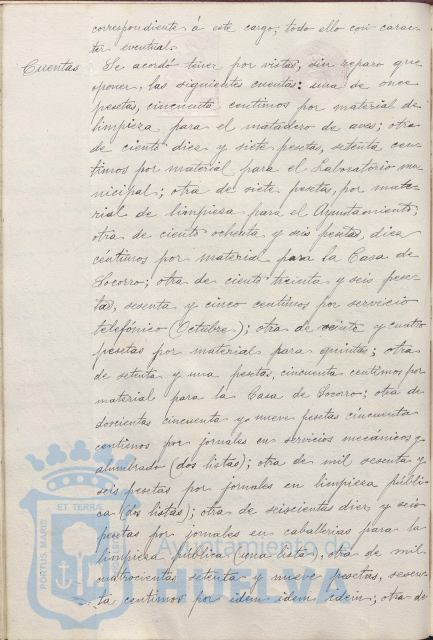 correspondiente á este cargo, todo ello con carac-
ter eventual.
Cuentas Se acordó tener por vistas, sin reparo que
oponer, las siguientes cuentas: una de once
pesetas, cincuenta centimos por material de
limpieza para el matadero de aves; otra
de ciento diez y siete pesetas, setenta cen-
timos por material para el Laboratorio mu-
nicipal; otra de siete pesetas, por mate-
rial de limpiesa para el Ayuntamiento;
otra de ciento ochenta y seis pesetas, diez
céntimos por material para la Casa de
Socorro; otra de ciento treinta y seis pese-
tas, sesenta y cinco centimos por servicio
telefónico (Octubre); otra de veinte y cuatro
pesetas por material para quintas; otra
de setenta y una pesetas, cincuenta centimos por
material para la Casa de Socorro; otra de
doscientas cincuenta y nueve pesetas cincuenta
centimos por jornales en servicios mecánicos y
alumbrado (dos listas); otra de mil sesenta y
seis pesetas por jornales en limpiesa públi-
ca (dos listas); otra de seiscientas diez y seis
pesetas por jornales en caballerias para la
limpiesa pública (una lista); otra de mil
cuatrocientas setenta y nueve pesetas, sesen-
ta centimos por idem idem idem; otra de
PORTUS MARIS ET TERRAE
Ayuntamiento de
HUELVA